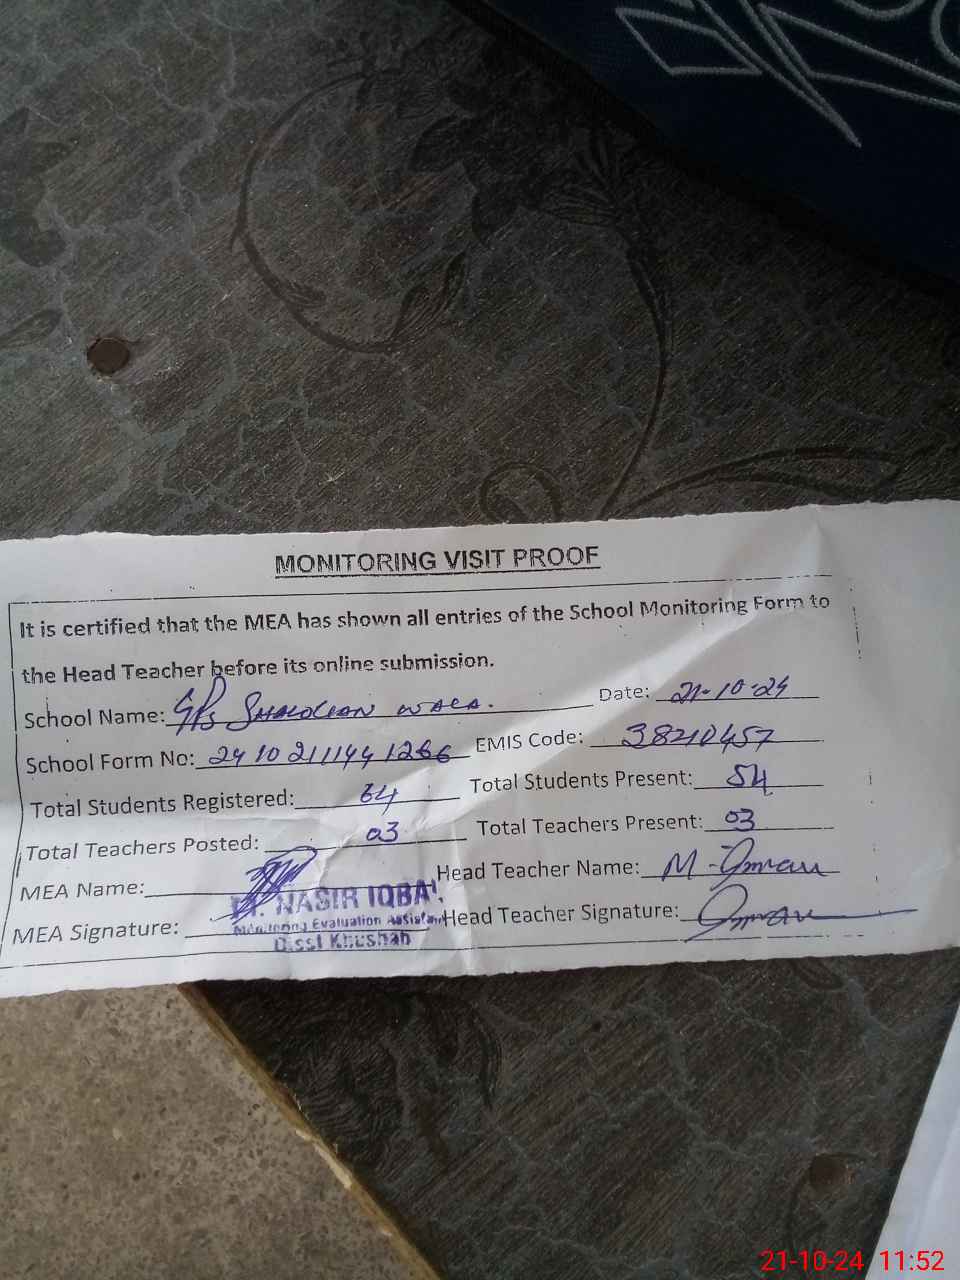 MONITORING VISIT PROOF
It is certified that the MEA has shown all entries of the School Monitoring Form to
the Head Teacher before its online submission.
School Name: GPS Date: 21-10-24
School Form No: EMIS Code: 38210457
Total Students Registered: 64 Total Students Present: 54
Total Teachers Posted: 03 Total Teachers Present: 03
MEA Name: Head Teacher Name: M. Imran
M. NASIR IQBAL
MEA Signature: Monitoring Evaluation Assistant Head Teacher Signature: Imran
Disst Khushab
21-10-24 11:52